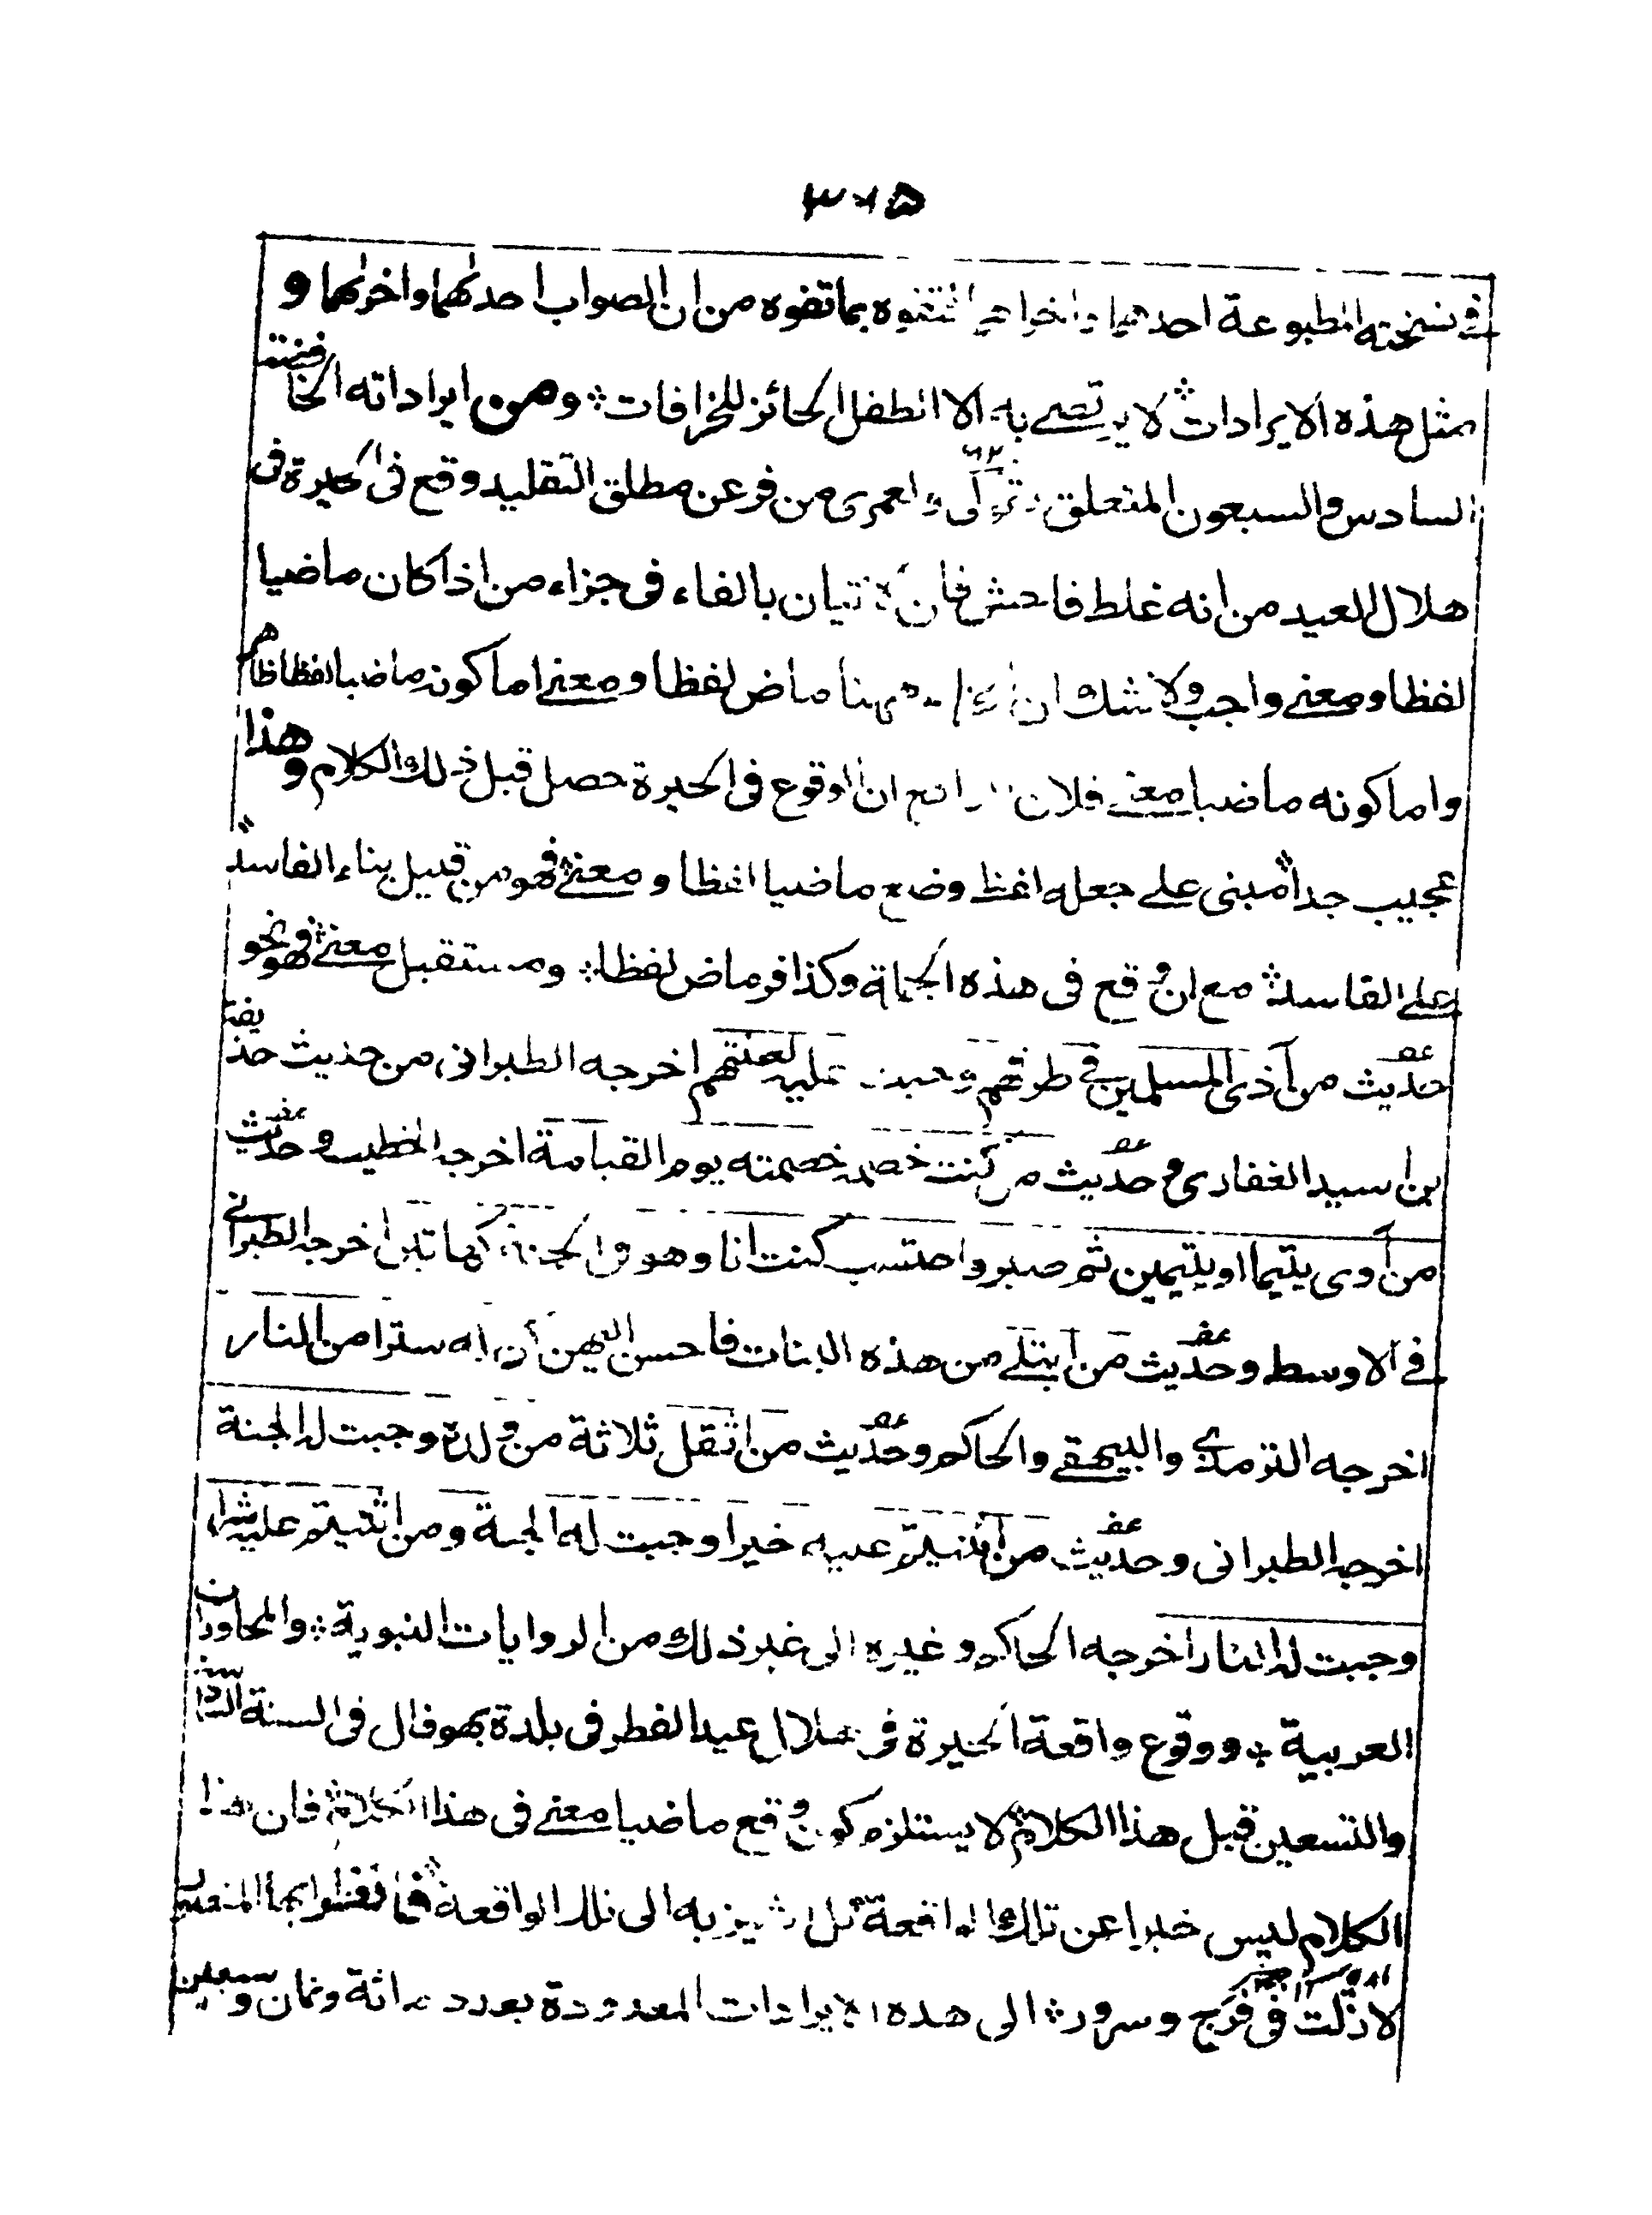 ٣٠٥
في نسخته المطبوعة احدهما واخراهما فتفوه بما تفوه من ان الصواب احدٰهما واخرٰهما و
مثل هذه الايرادات لا يرتضے به الا الطفل الحائز للخرافات ومن ايراداته الخا
السادس والسبعون المتعلق بقولى ولعمرى من فر عن مطلق التقليد وقع فى الحيرة فى
هلال العيد من انه غلط فاحش فان الاتيان بالفاء فى جزاء من اذا كان ماضيا
لفظا ومعنے واجب ولا شك ان الجزاء ههنا ماض لفظا ومعنے اما كونه ماضيا لفظا فظاهر
واما كونه ماضيا معنے فلان الوقوع فى الحيرة حصل قبل ذلك الكلام وهذا
عجيب جدا مبنى علے جعله لفظ وقع ماضيا لفظا ومعنے فهو من قبيل بناء الفاسد
علے الفاسد مع ان وقع فى هذه الجملة وكذا فر ماض لفظا ومستقبل معنے فهو نحو
حديث من آذى المسلمين في طرقهم وجبت عليه لعنتهم اخرجه الطبرانى من حديث حذيفة
بن اسيد الغفارى وحديث من كنت خصمه خصمته يوم القيامة اخرجه الخطيب وحديث
من آوى يتيما او يتيمين ثم صبر واحتسب كنت انا وهو فى الجنة كهاتين اخرجه الطبرانے
فے الاوسط وحديث من ابتلے من هذه البنات فاحسن اليهن كن له سترا من النار
اخرجه الترمذي والبيهقے والحاكم وحديث من اثقل ثلاثة من ولده وجبت له الجنة
اخرجه الطبرانى وحديث من اثنيتم عليه خيرا وجبت له الجنة ومن اثنيتم عليه شرا
وجبت له النار اخرجه الحاكم وغيره الى غير ذلك من الروايات النبوية والمحاورات
العربية ووقوع واقعة الحيرة فى هلال عيد الفطر فى بلدة بهوفال فى السنة
والتسعين قبل هذا الكلام لا يستلزم كون وقع ماضيا معنے فى هذا الكلام فان هذا
الكلام ليس خبرا عن تلك الواقعة بل اشير به الى تلك الواقعة
لا زلت فى فرح وسرور الى هذه الايرادات المعدودة بعدد مائة وثمان وسبعين